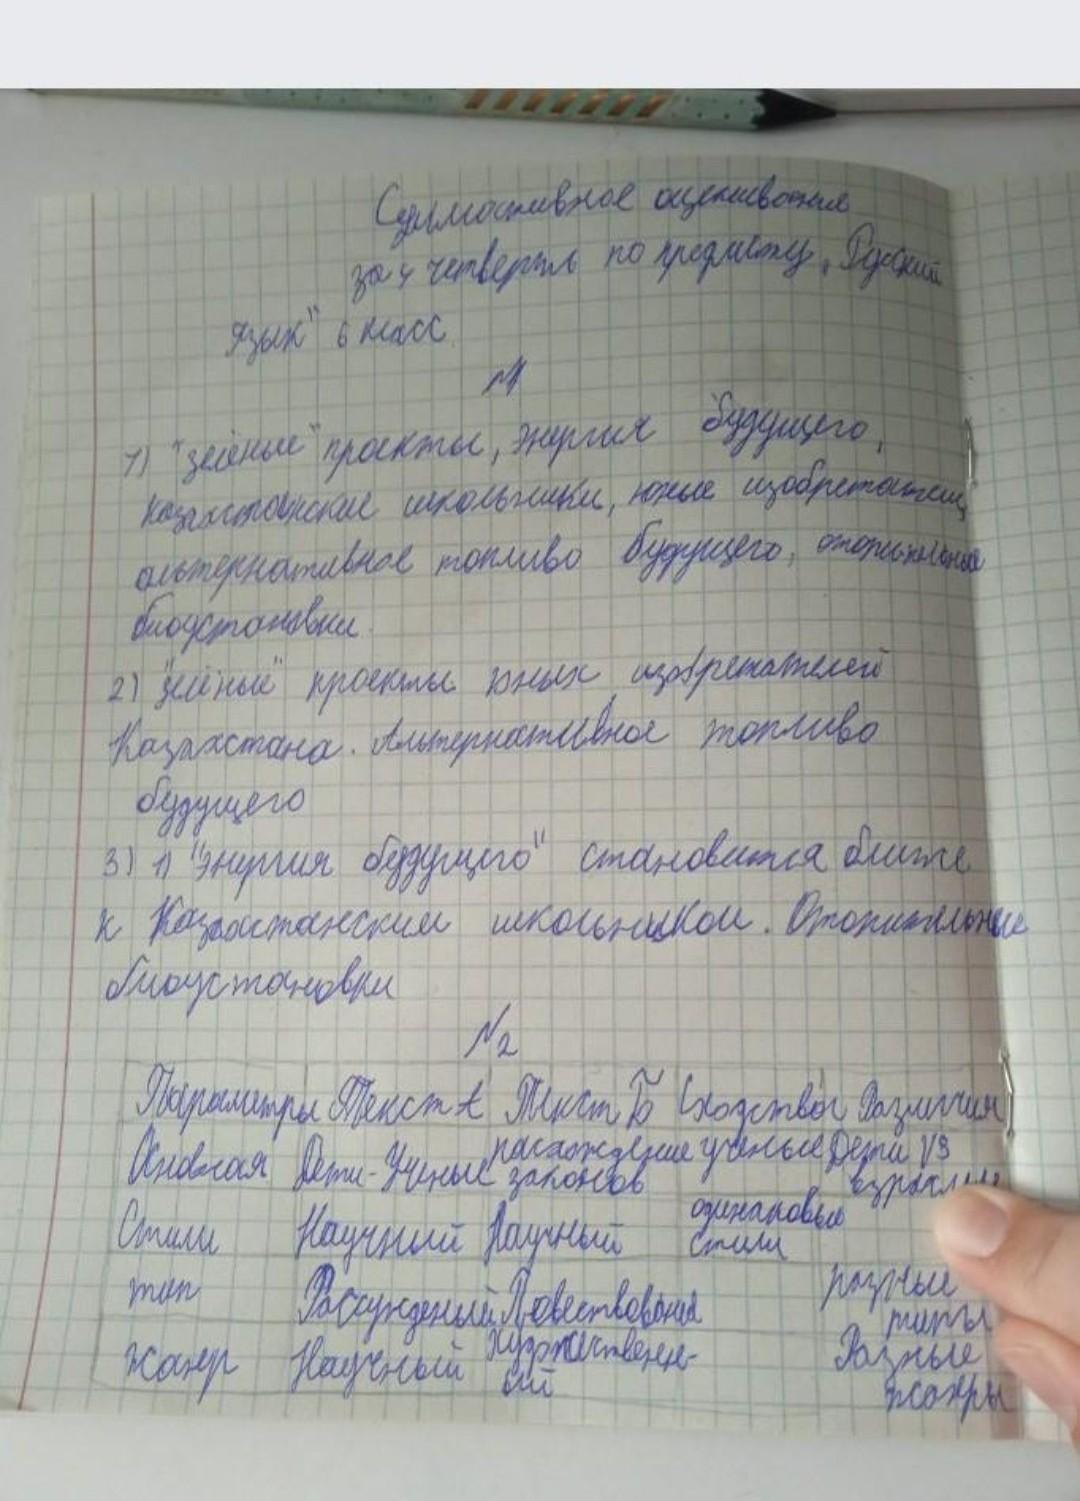 Суммативное оценивание
за 4 четверть по предмету „Русский
язык" 6 класс.
№1
1) "зелёные" проекты, энергия будущего,
казахстанские школьники, юные изобретатели,
альтернативное топливо будущего, отопительные
биоустановки.
2) "зелёные" проекты юных изобретателей
Казахстана. Альтернативное топливо
будущего
3) 1) "энергия будущего" становится ближе
к Казахстанским школьникам. Отопительные
биоустановки
№2
Параметры Текст А Текст Б Сходства Различия
Основная Дети-Ученые нахождение законов ученые Дети VS взрослые
Стили Научный Научный одинаковые стили
тип Рассуждений Повествование разные типы
Жанр Научный художественный Разные жанры